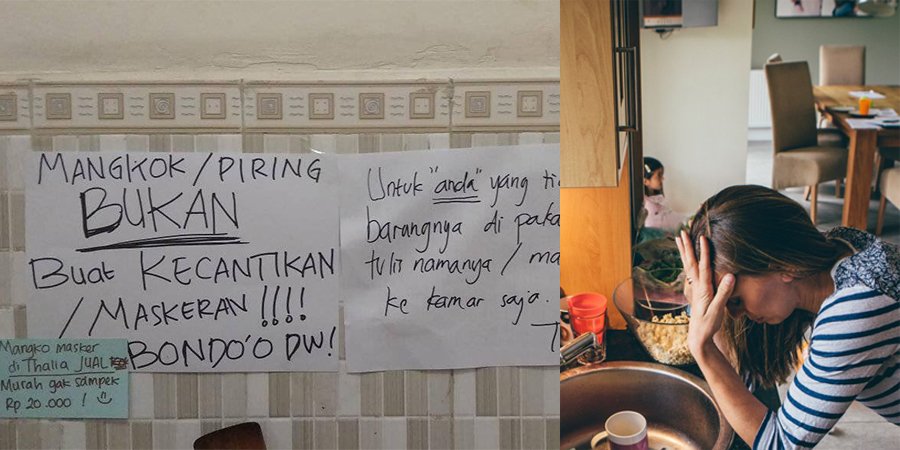 MANGKOK / PIRING
BUKAN
Buat KECANTIKAN
/ MASKERAN !!!!
BONDO'O DW!
Mangko masker
di Thalia JUAL
Murah gak sampek
Rp 20.000 !
Untuk "anda" yang
barangnya di
tulis namanya /
ke kamar saja.